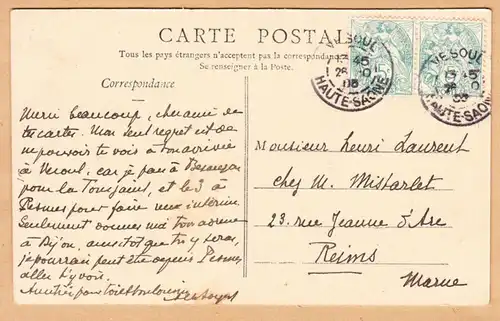 CARTE POSTALE
Tous les pays étrangers n'acceptent pas la correspondance
Se renseigner à la Poste.
Correspondance
VESOUL
15 45
26 -10
08
HAUTE-SAONE
VESOUL
15 45
26 10
08
HAUTE-SAONE
Merci beaucoup, cher ami de
ta carte. Mon seul regret est de
ne pouvoir te voir à ton arrivée
à Vesoul, car je pars à Besançon
pour la Toussaint, et le 3 à
Pesmes pour faire un intérim
Seulement donnes moi ton adresse
à Dijon, aussitôt que tu y seras,
je pourrais peut être depuis Pesmes
aller t'y voir.
Monsieur Henri Laurent
chez M. Mistarlet
23. rue Jeanne d'Arc
Reims
Marne